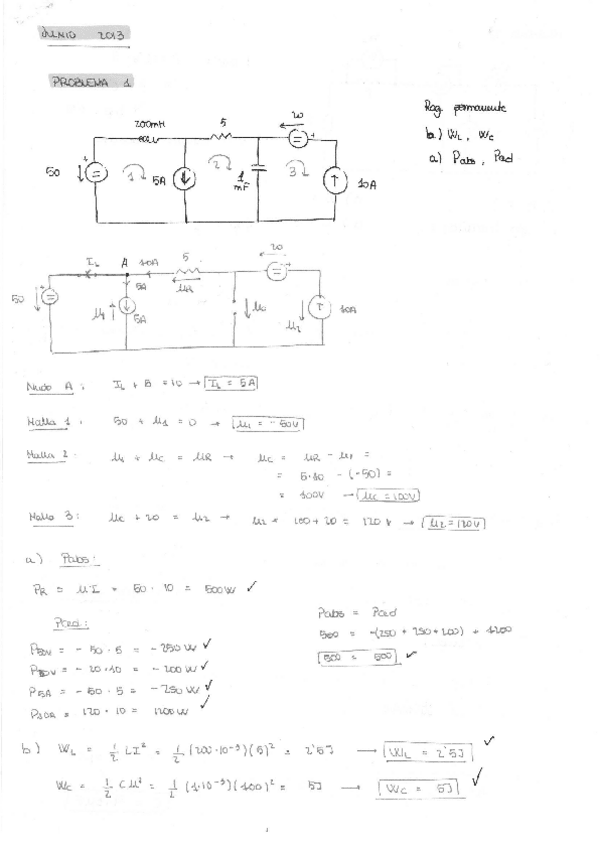 JUNIO 2013
PROBLEMA 1
Reg. permanente
b) WL, Wc
a) Pabs, Pced
200mH 5 20
50 1 5A 2 1 mF 3 10A
IL A 10A 5 20
5A UR
50 U1 5A Uc U2 10A
Nudo A: IL + 5 = 10 → IL = 5A
Malla 1: 50 + U1 = 0 → U1 = -50V
Malla 2: U1 + Uc = UR → Uc = UR - U1 =
= 5·10 - (-50) =
= 100V → Uc = 100V
Malla 3: Uc + 20 = U2 → U2 = 100 + 20 = 120V → U2 = 120V
a) Pabs:
PR = UI = 50 · 10 = 500W ✓
Pced:
P50V = - 50 · 5 = - 250W ✓
P20V = - 20 · 10 = - 200W ✓
P5A = - 50 · 5 = - 250W ✓
P10A = 120 · 10 = 1200W ✓
Pabs = Pced
500 = -(250 + 250 + 200) + 1200
500 = 500 ✓
b) WL = 1/2 LI² = 1/2 (200·10⁻³)(5)² = 2'5J → WL = 2'5J ✓
Wc = 1/2 CU² = 1/2 (1·10⁻³)(100)² = 5J → Wc = 5J ✓